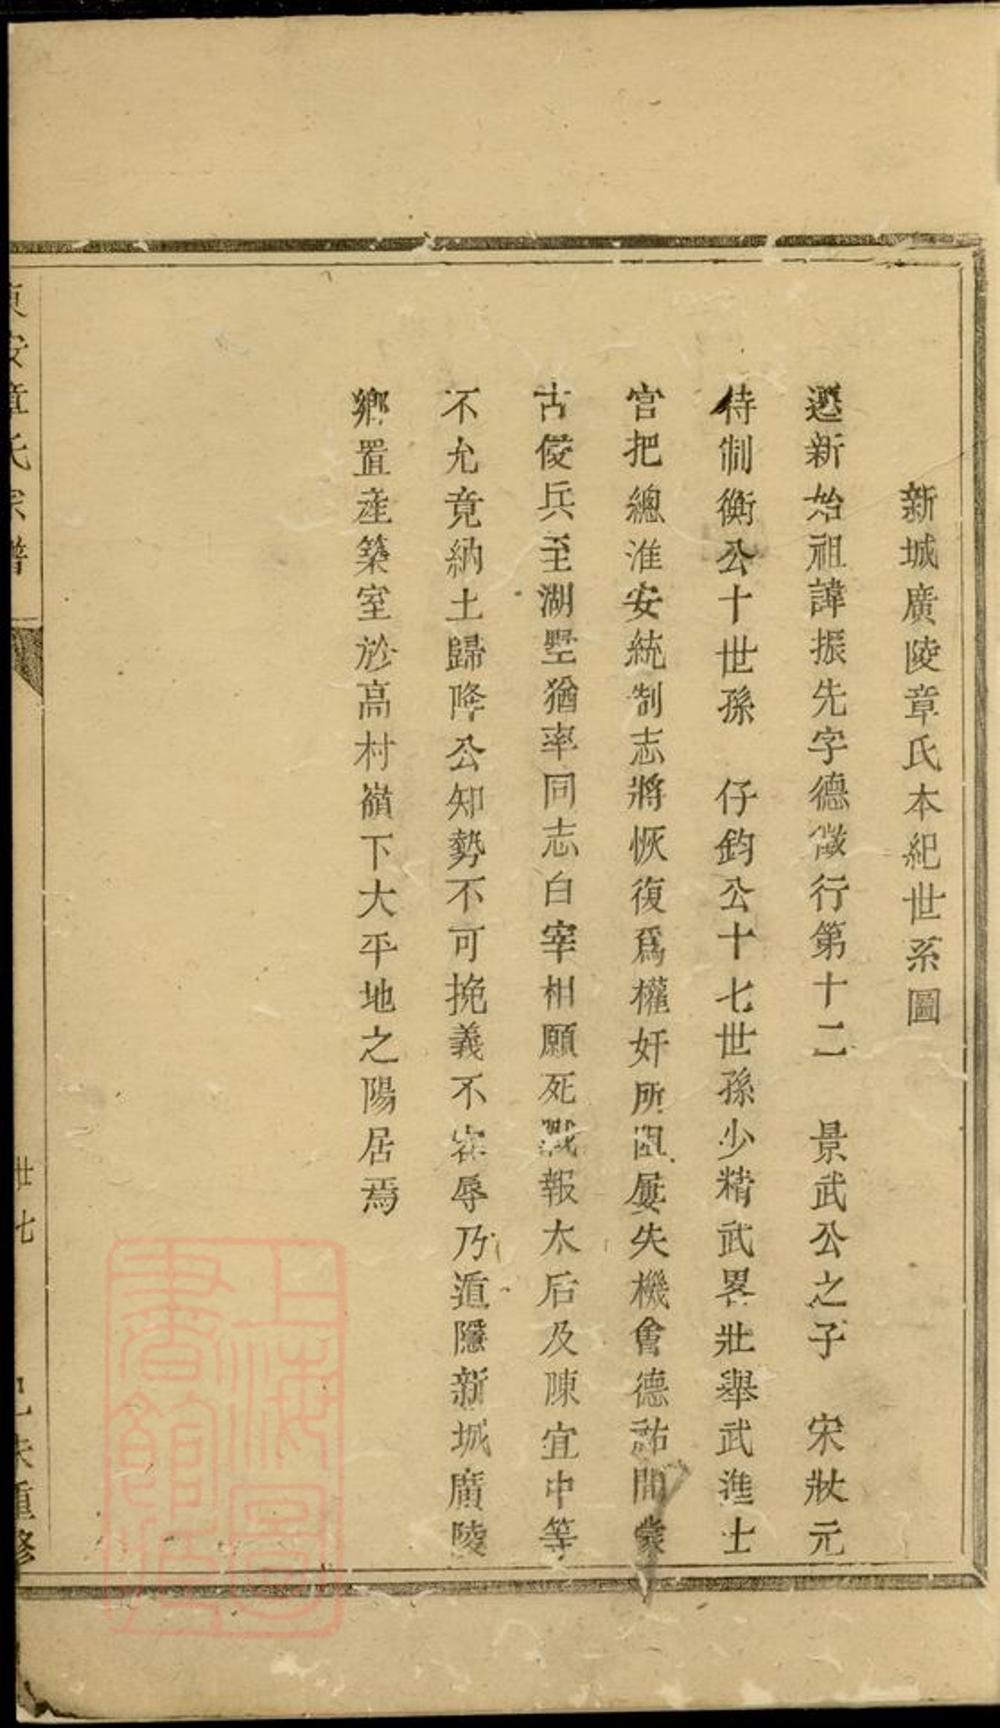 新城廣陵章氏本紀世系圖
遷新始祖諱振先字德徵行第十二　景武公之子　宋狀元
待制衡公十世孫　仔鈞公十七世孫少精武畧壯舉武進士
官把總淮安統制志將恢復爲權奸所阻屢失機會德祐間蒙
古倰兵至湖墅猶率同志白宰相願死戰報太后及陳宜中等
不允竟納土歸降公知勢不可挽義不容辱乃遁隱新城廣陵
鄉置產築室於高村嶺下大平地之陽居焉
東安章氏宗譜
廿七
重修
上海圖書館藏